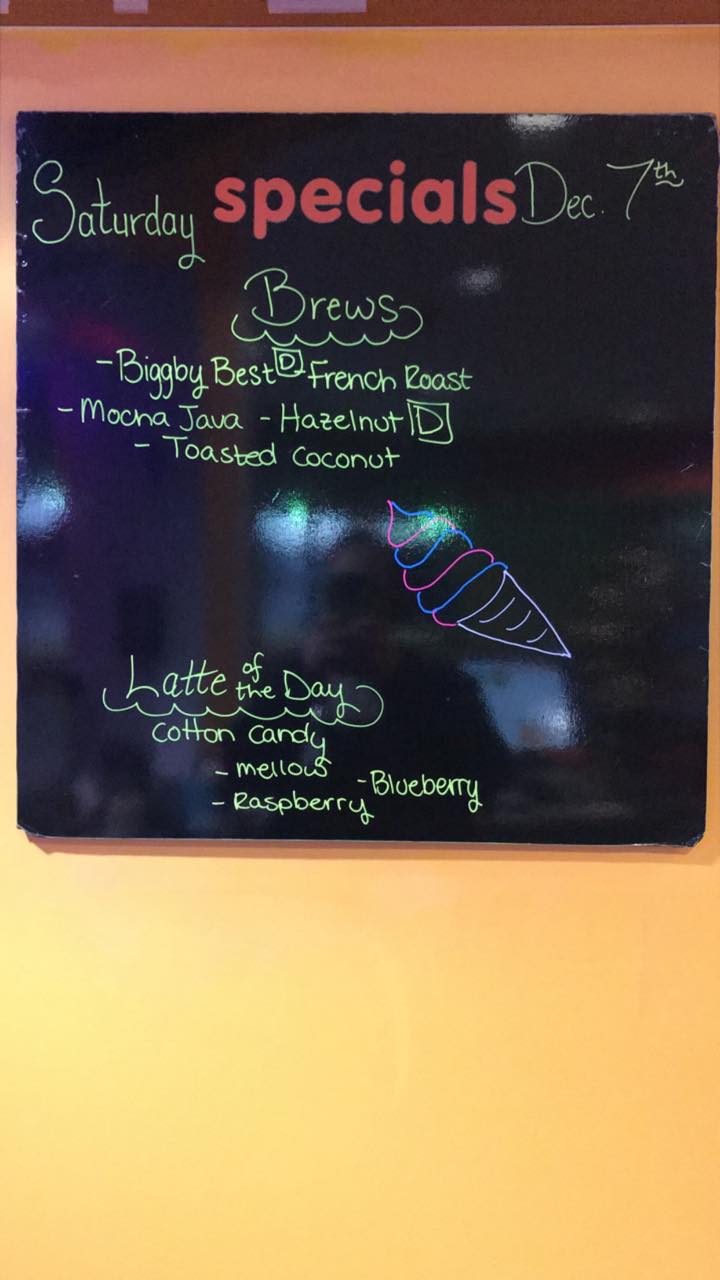 Saturday specials Dec. 7th
Brews
- Biggby Best D French Roast
- Mocha Java - Hazelnut D
- Toasted Coconut
Latte of the Day
Cotton Candy
- mellow
- Blueberry
- Raspberry